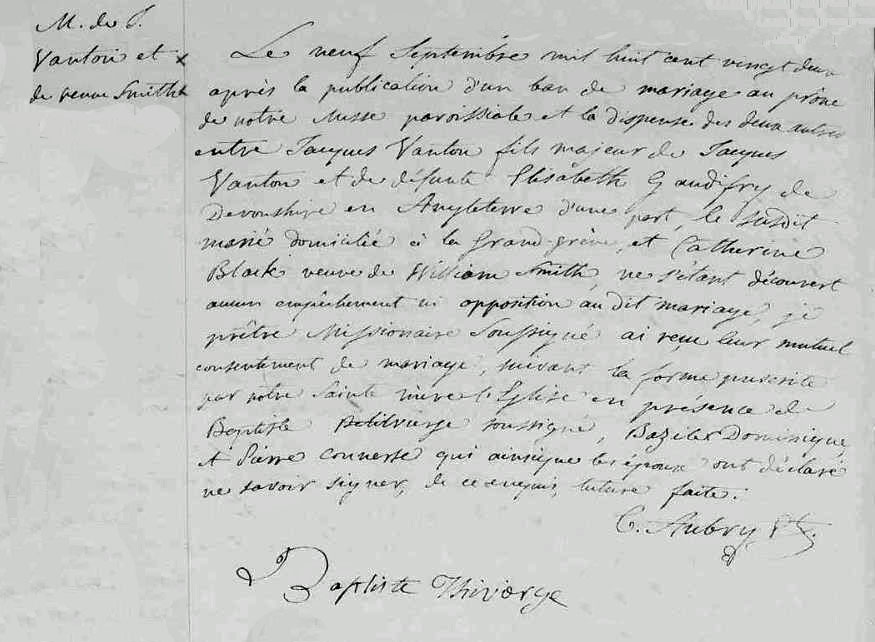 M. de J.
Vautour et
de veuve Smith
Le neuf Septembre mil huit cent vingt deux
après la publication d'un ban de mariage au prône
de notre Messe paroissiale et la dispense des deux autres
entre Jacques Vanton fils majeur de Jacques
Vanton et de défunte Elisabeth Gaudifry de
Devonshire en Angleterre d'une part, le susdit
marié domicilié à la Grand-grève, et Catherine
Blak veuve de William Smith, ne s'étant découvert
aucun empêchement ni opposition au dit mariage, je
prêtre Missionaire Soussigné ai reçu leur mutuel
consentement de mariage, suivant la forme prescrite
par notre Sainte mère l'Eglise en présence de
Baptiste soussigné, Bazile Dominique
et Pierre Connerse qui ainsique les époux ont déclaré
ne savoir signer, de ce enquis, lecture faite.
C. Aubry Ptre.
Baptiste Thivierge